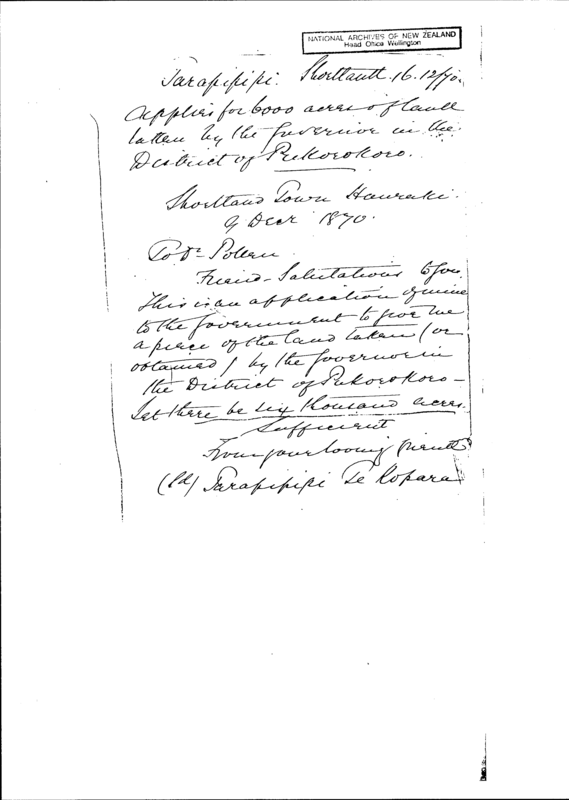 NATIONAL ARCHIVES OF NEW ZEALAND
Head Office Wellington
Tarapipipi. Shortland 16.12/70.
Applies for 6000 acres of land
taken by the Governor in the
District of Pukorokoro.
Shortland Town Hauraki.
9 Decr 1870.
To Dr Pollen
Friend - Salutations to you.
This is an application of mine
to the Government to give me
a piece of the land taken (or
obtained) by the Governor in
the District of Pukorokoro -
Let there be six thousand acres.
Sufficient
From your loving friend
(Sd) Tarapipipi Te Kopara